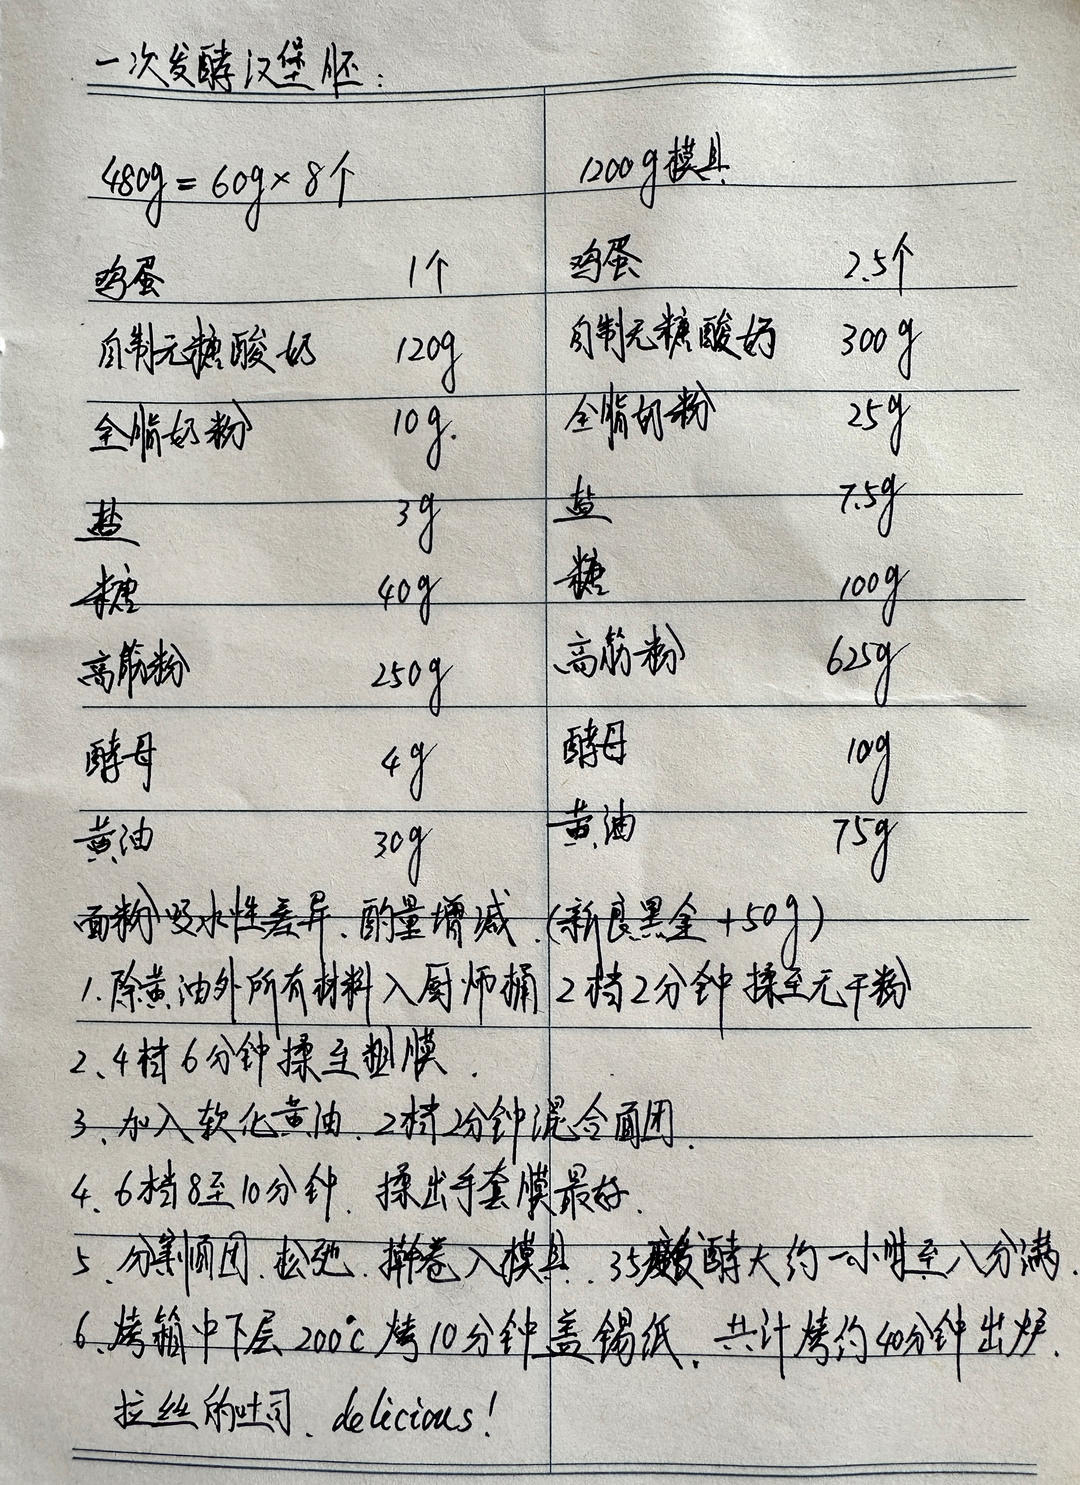 一次发酵汉堡胚：
480g=60g×8个 1200g模具
鸡蛋 1个 鸡蛋 2.5个
自制无糖酸奶 120g 自制无糖酸奶 300g
全脂奶粉 10g. 全脂奶粉 25g
盐 3g 盐 7.5g
糖 40g 糖 100g
高筋粉 250g 高筋粉 625g
酵母 4g 酵母 10g
黄油 30g 黄油 75g
面粉吸水性差异、酌量增减.(新良黑金+50g)
1.除黄油外所有材料入厨师桶 2档2分钟揉至无干粉
2、4档6分钟揉至粗膜.
3、加入软化黄油.2档2分钟混合面团.
4、6档8至10分钟.揉出手套膜最好.
5、分割面团.松弛.擀卷入模具.35度发酵大约一小时至八分满.
6、烤箱中下层200℃烤10分钟盖锡纸.共计烤约40分钟出炉.
拉丝的吐司、delicious!